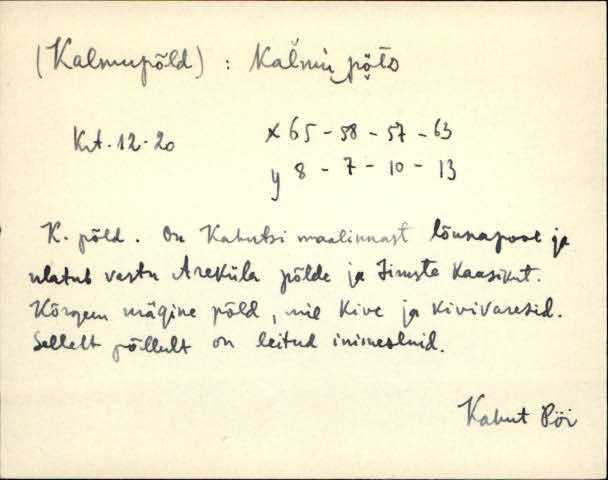 (Kalmupõld) : Kalmu põto
Krt. 12-20
x 65 - 58 - 57 - 63
y 8 - 7 - 10 - 13
K. põld. On Kahutsi maalinnast lõunapool ja
ulatub vastu Areküla põlde ja Jimste Kaasikut.
Kõrgem mägine põld, nie kive ja kivivaresid.
Sellelt põllult on leitud inimesluid.
Kahut Pöi